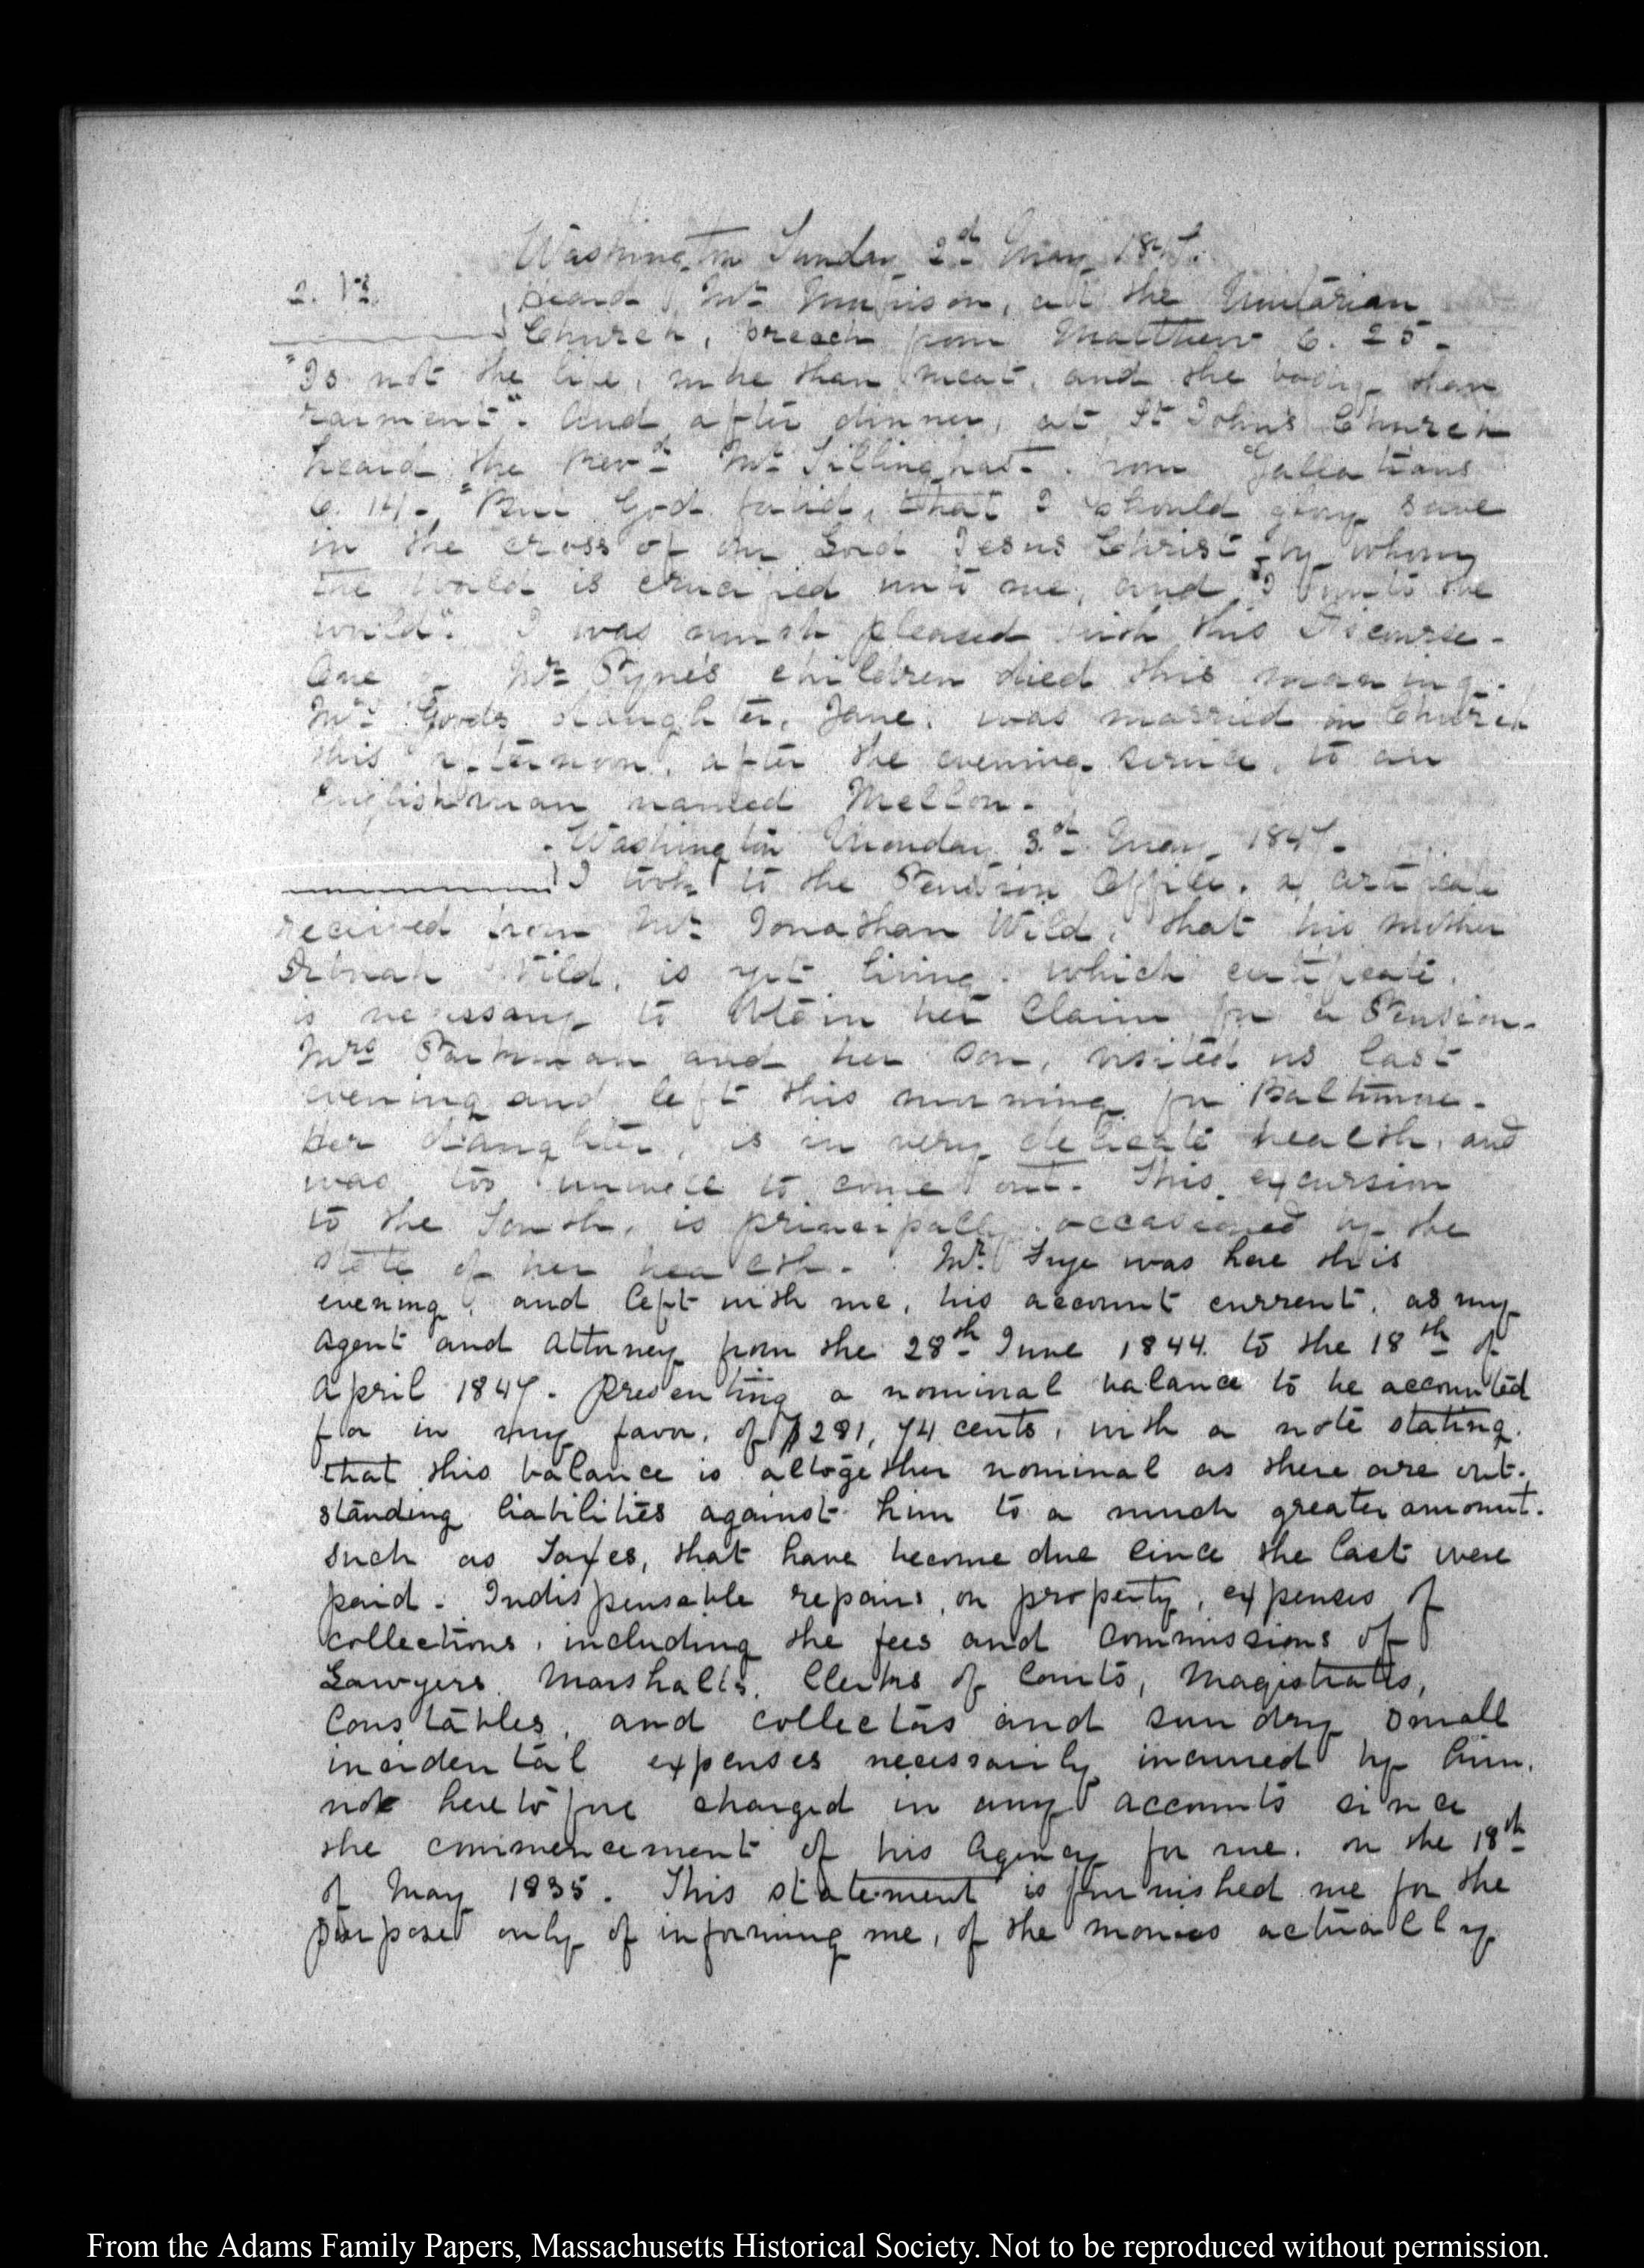 Washington Sunday 2d May 1847.
2. 12. heard Mr Morison, at the Unitarian
Church, preach from Matthew 6. 25-
"Is not the life, more than meat, and the body than
raiment". And after dinner, at St John's Church
heard the Revd Mr Tillinghast. from Galatians
6. 14. "But God forbid, that I should glory save
in the cross of our Lord Jesus Christ by whom
the world is crucified unto me, and I unto the
world". I was much pleased with this discourse-
One of Mr Pyne's children died this morning.
Mrs daughter, Jane. was married in Church
this afternoon, after the evening service, to an
Englishman named Mellon-
Washington Monday 3.d May 1847-
I took to the Pension Office. a certificate
received from Mr Jonathan Wild, that his mother
Wild, is yet living. which certificate.
is necessary to obtain her Claim for a Pension-
Mrs Parkman and her son, visited us last
evening and left this morning for Baltimore-
Her daughter, is in very delicate health, and
was too unwell to come out. This excursion
to the South, is principally occasioned by the
state of her health. Mr. Frye was here this
evening, and left with me, his account current, as my
Agent and Attorney from the 28th June 1844. to the 18th of
April 1847- presenting a nominal balance to be accounted
for in my favor, of $281, 74 cents, with a note stating.
that this balance is altogether nominal as there are out-
standing liabilities against him to a much greater amount.
Such as Taxes, that have become due since the last were
paid- Indispensable repairs, on property, expenses of
collections, including the fees and commissions of
Lawyers. Marshalls. Clerks of Courts, Magistrates,
Constables, and collectors and sundry small
incidental expenses necessarily incurred by him.
not heretofore charged in any accounts since
the commencement of his Agency for me. on the 18th
of May 1835. This statement is furnished me for the
purpose only of informing me, of the monies actually
From the Adams Family Papers, Massachusetts Historical Society. Not to be reproduced without permission.